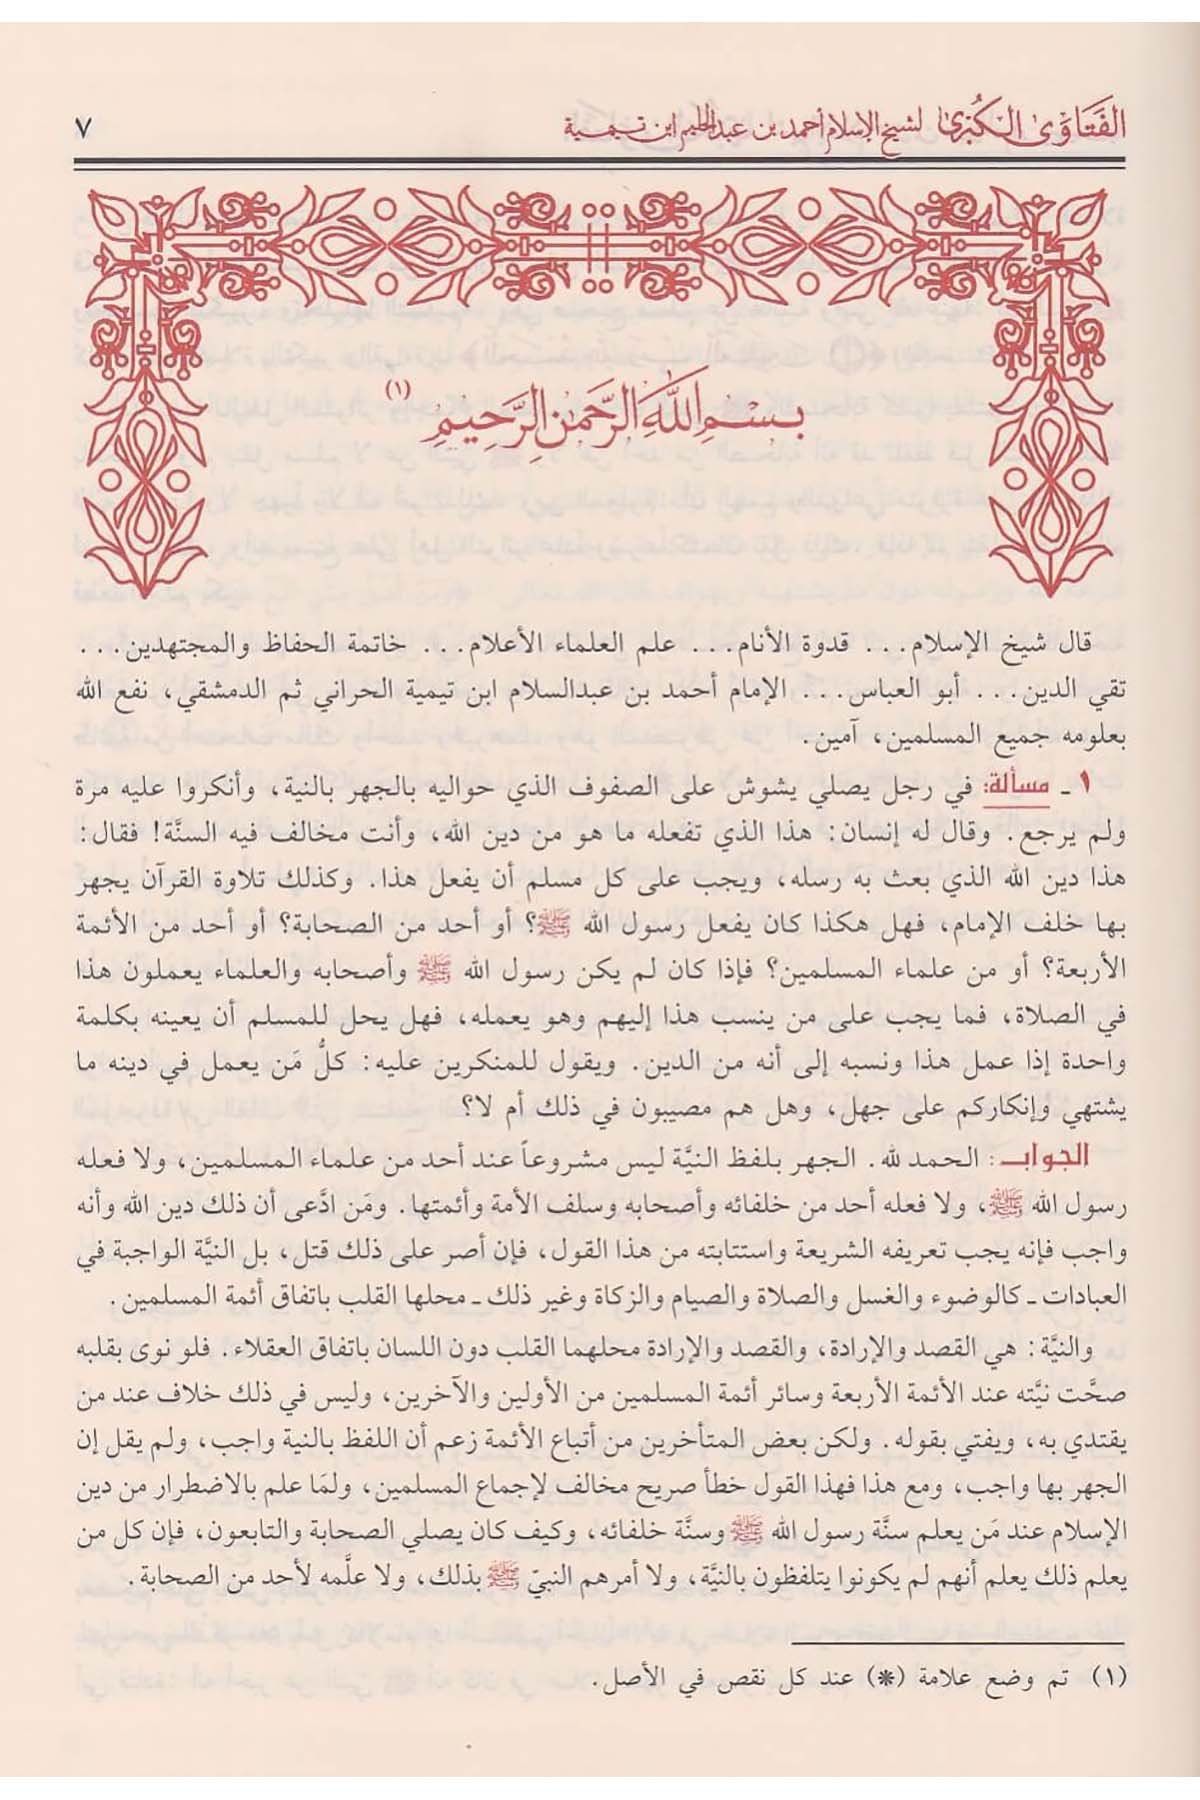 الفَتَاوَىٰ الكُبْرىٰ لشيخ الإسلام أحمد بن عبد الحليم ابن تيمية
٧
بِسْمِ اللهِ الرَّحْمٰنِ الرَّحِيمِ (١)
قال شيخ الإسلام... قدوة الأنام... علم العلماء الأعلام... خاتمة الحفاظ والمجتهدين...
تقي الدين... أبو العباس... الإمام أحمد بن عبدالسلام ابن تيمية الحراني ثم الدمشقي، نفع الله
بعلومه جميع المسلمين، آمين.
١ ـ مسألة: في رجل يصلي يشوش على الصفوف الذي حواليه بالجهر بالنية، وأنكروا عليه مرة
ولم يرجع. وقال له إنسان: هذا الذي تفعله ما هو من دين الله، وأنت مخالف فيه السنَّة! فقال:
هذا دين الله الذي بعث به رسله، ويجب على كل مسلم أن يفعل هذا. وكذلك تلاوة القرآن يجهر
بها خلف الإمام، فهل هكذا كان يفعل رسول الله ﷺ؟ أو أحد من الصحابة؟ أو أحد من الأئمة
الأربعة؟ أو من علماء المسلمين؟ فإذا كان لم يكن رسول الله ﷺ وأصحابه والعلماء يعملون هذا
في الصلاة، فما يجب على من ينسب هذا إليهم وهو يعمله، فهل يحل للمسلم أن يعينه بكلمة
واحدة إذا عمل هذا ونسبه إلى أنه من الدين. ويقول للمنكرين عليه: كلُّ مَن يعمل في دينه ما
يشتهي وإنكاركم على جهل، وهل هم مصيبون في ذلك أم لا؟
الجواب: الحمد لله. الجهر بلفظ النيَّة ليس مشروعاً عند أحد من علماء المسلمين، ولا فعله
رسول الله ﷺ، ولا فعله أحد من خلفائه وأصحابه وسلف الأمة وأئمتها. ومَن ادَّعى أن ذلك دين الله وأنه
واجب فإنه يجب تعريفه الشريعة واستتابته من هذا القول، فإن أصر على ذلك قتل، بل النيَّة الواجبة في
العبادات ـ كالوضوء والغسل والصلاة والصيام والزكاة وغير ذلك ـ محلها القلب باتفاق أئمة المسلمين.
والنيَّة: هي القصد والإرادة، والقصد والإرادة محلهما القلب دون اللسان باتفاق العقلاء. فلو نوى بقلبه
صحَّت نيَّته عند الأئمة الأربعة وسائر أئمة المسلمين من الأولين والآخرين، وليس في ذلك خلاف عند من
يقتدي به، ويفتي بقوله. ولكن بعض المتأخرين من أتباع الأئمة زعم أن اللفظ بالنية واجب، ولم يقل إن
الجهر بها واجب، ومع هذا فهذا القول خطأ صريح مخالف لإجماع المسلمين، ولمَا علم بالاضطرار من دين
الإسلام عند مَن يعلم سنَّة رسول الله ﷺ وسنَّة خلفائه، وكيف كان يصلي الصحابة والتابعون، فإن كل من
يعلم ذلك يعلم أنهم لم يكونوا يتلفظون بالنيَّة، ولا أمرهم النبيّ ﷺ بذلك، ولا علَّمه لأحد من الصحابة.
(١) تم وضع علامة (*) عند كل نقص في الأصل.